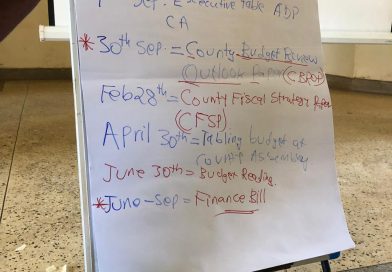 1st Sep. Executive Table ADP
CA
*30th Sep. = County Budget Review
Outlook Paper (CBROP)
Feb 28th = County Fiscal Strategy Paper
(CFSP)
April 30th = Tabling budget at
County Assembly
June 30th = Budget Reading.
*June - Sep = Finance Bill